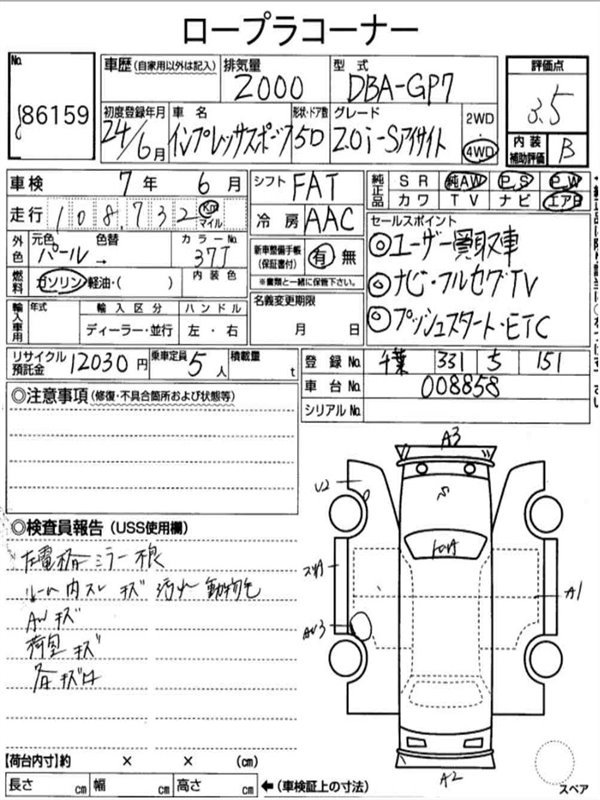 ロープラコーナー
No.
86159
車歴 (自家用以外は記入) 排気量 型式
2000 DBA-GP7
評価点
3.5
内装補助評価 B
初度登録年月 車名 形状・ドア数 グレード
24/6月 インプレッサスポーツ 5D 2.0i-Sアイサイト 2WD・4WD
車検 7年 6月
シフト FAT
純正品 SR 純AW PS PW
カワ TV ナビ エアB
走行 108,732 Km マイル
冷房 AAC
外色 元色 色替 カラーNo.
パール → 37J
新車整備手帳(保証書付) 有 無
※書類と一緒に保管下さい。
セールスポイント
◎ユーザー買取車
◎ナビ・フルセグTV
◎プッシュスタート・ETC
燃料 ガソリン・軽油・( ) 内装色
名義変更期限
月 日
輸入車用 年式 輸入区分 ハンドル
ディーラー・並行 左・右
リサイクル預託金 12030円 乗車定員 5人 積載量 t
登録No. 千葉 331 5 151
車台No. 008858
シリアルNo.
◎注意事項 (修復・不具合箇所および状態等)
◎検査員報告 (USS使用欄)
左電格ミラー
内スレ キズ 汚れ
AWキズ
荷室キズ
A3
U2
A1
A2
スペア
【荷台内寸】約 × × (cm)
長さ 幅 高さ ←(車検証上の寸法)